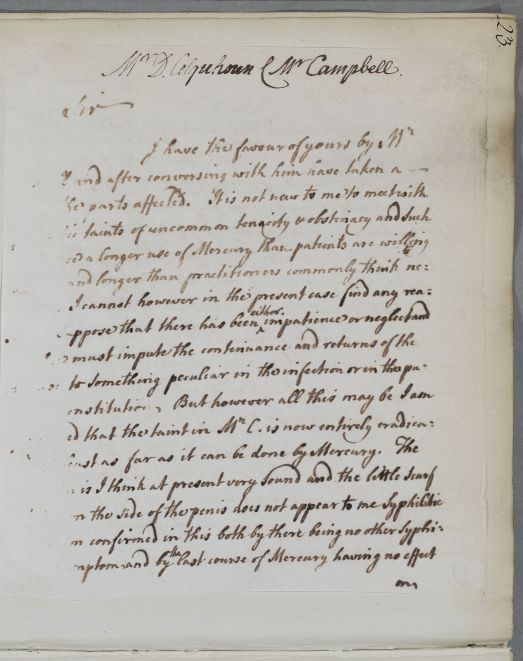 23.
Mr D. Colquhoun & Mr Campbell.
Sir
I have the favour of yours by Mr
and after conversing with him have taken a
the parts affected. It is not new to me to meet with
taints of uncommon tenacity & obstinacy and such
a longer use of Mercury than patients are willing
and longer than practitioners commonly think ne:
I cannot however in the present case find any rea:
ppose that there has been either impatience or neglect and
must impute the continuance and returns of the
to something peculiar in the infection or in the pa:
nstitution, But however all this may be I am
ed that the taint in Mr C. is now entirely eradica:
east as far as it can be done by Mercury. The
is I think at present very sound and the little scurf
n the side of the penis does not appear to me Syphilitic
m confirmed in this both by there being no other Syphi:
mptom and by the last course of Mercury having no effect
on